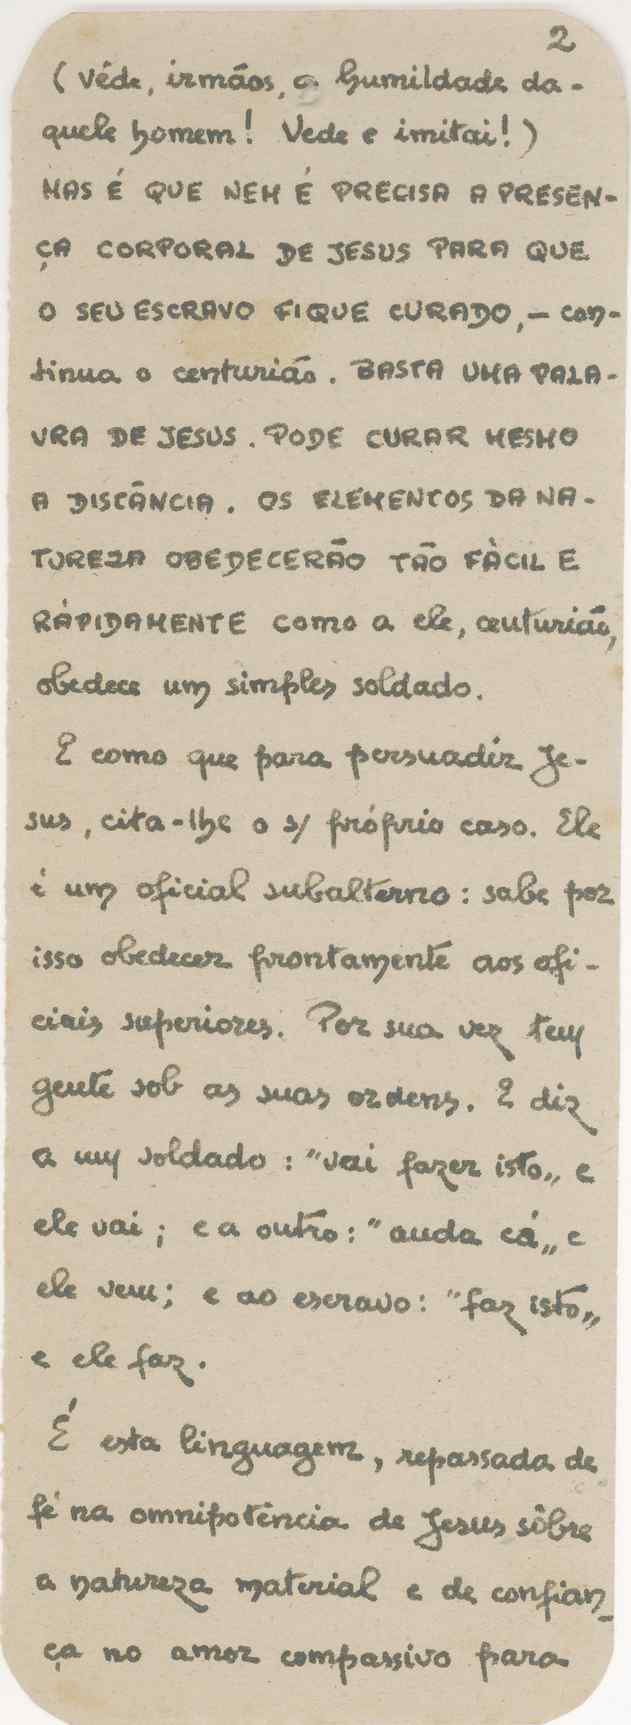 2
(Véde, irmãos, a humildade da-
quele homem! Vede e imitai!)
MAS É QUE NEM É PRECISA A PRESEN-
ÇA CORPORAL DE JESUS PARA QUE
O SEU ESCRAVO FIQUE CURADO, – con-
tinua o centurião. BASTA UMA PALA-
VRA DE JESUS. PODE CURAR MESMO
A DISTÂNCIA. OS ELEMENTOS DA NA-
TUREZA OBEDECERÃO TÃO FÀCIL E
RÀPIDAMENTE como a ele, centurião,
obedece um simples soldado.
E como que para persuadir Je-
sus, cita-lhe o s/ próprio caso. Ele
é um oficial subalterno: sabe por
isso obedecer prontamente aos ofi-
ciais superiores. Por sua vez tem
gente sob as suas ordens. E diz
a um soldado: "vai fazer isto„ e
ele vai; e a outro: "anda cá„ e
ele vem; e ao escravo: "faz isto„
e ele faz.
É esta linguagem, repassada de
fé na omnipotência de Jesus sôbre
a natureza material e de confian-
ça no amor compassivo para